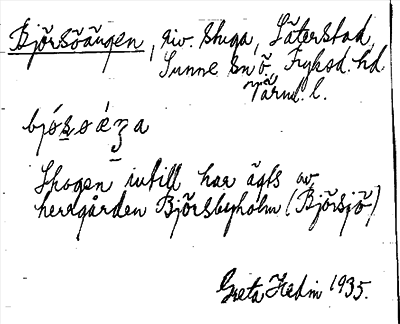 Björsöängen, riv. stuga, Läterstad,
Sunne sn ö. Fryksd. hd
Värml. l.
bjó̱s̱oéʒa
Skogen intill har ägts av
herrgården Björsbyholm (Björsjö)
Greta Hedin 1935.